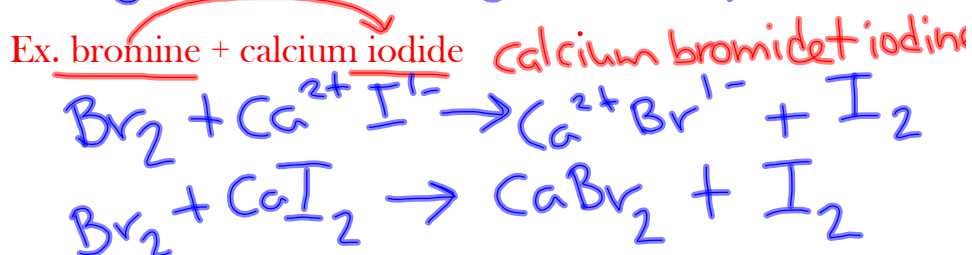 Ex. bromine + calcium iodide calcium bromide + iodine
Br₂ + Ca²⁺ I¹⁻ → Ca²⁺ Br¹⁻ + I₂
Br₂ + CaI₂ → CaBr₂ + I₂